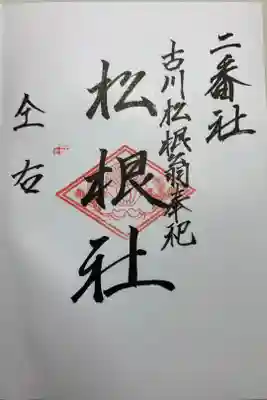 二番社
古川松根翁奉祀
松根社
仝右